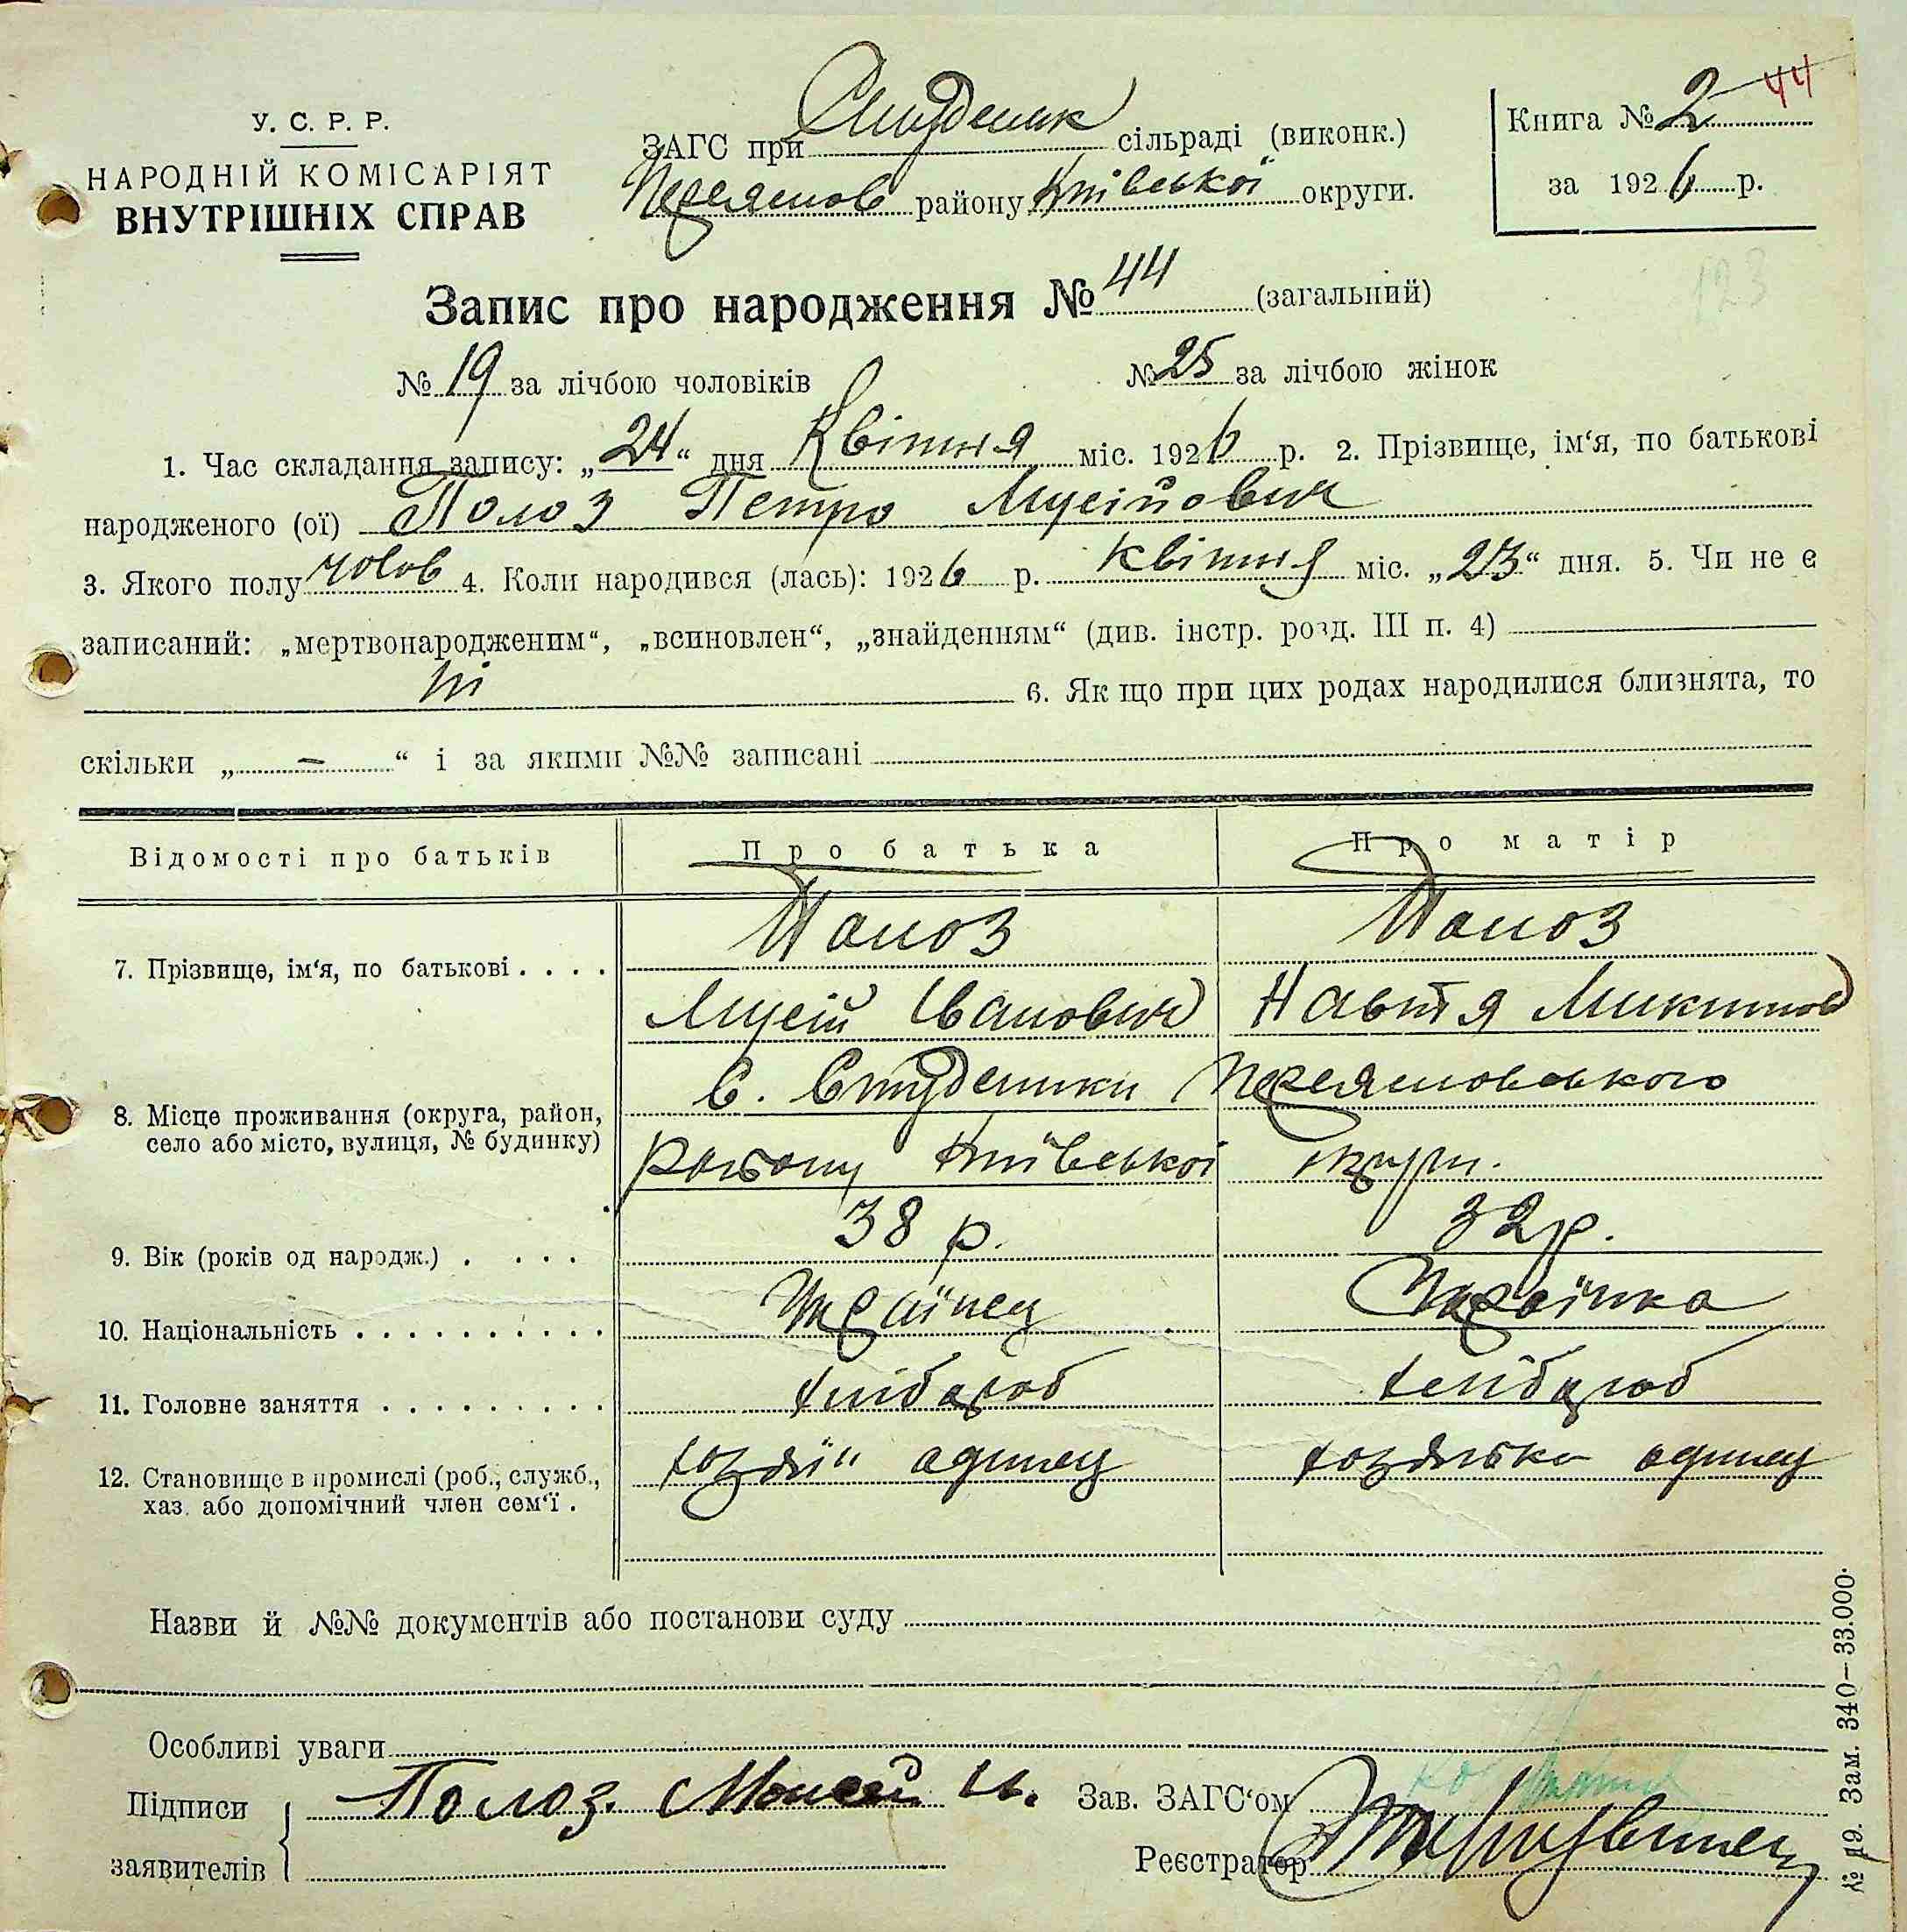 У. С. Р. Р.
НАРОДНІЙ КОМІСАРІЯТ
ВНУТРІШНІХ СПРАВ
ЗАГС при Студеник сільраді (виконк.)
Переяслов району Київської округи.
Книга № 2 44
за 1926 р.
123
Запис про народження № 44 (загальний)
№ 19 за лічбою чоловіків № 25 за лічбою жінок
1. Час складання запису: „24“ дня Квітня міс. 1926 р. 2. Прізвище, ім‘я, по батькові
народженого (ої) Полоз Петро Мусійович
3. Якого полу чолов 4. Коли народився (лась): 1926 р. Квітня міс. „23“ дня. 5. Чи не є
записаний: „мертвонародженим“, „всиновлен“, „знайденням“ (див. інстр. розд. III п. 4)
ні 6. Як що при цих родах народилися близнята, то
скільки „ – “ і за якими №№ записані
Відомості про батьків Про батька Про матір
7. Прізвище, ім‘я, по батькові . . . . Полоз Полоз
Мусій Іванович Настя Микитов
8. Місце проживання (округа, район, село або місто, вулиця, № будинку) С. Студеники Переясловського
району Київської округи.
9. Вік (років од народж.) . . . . 38 р. 32 р.
10. Національність . . . . . . . . . . . Українец Українка
11. Головне заняття . . . . . . . . . хлібороб хлібороб
12. Становище в промислі (роб., служб., хаз. або допомічний член сем‘ї . хозяїн одинец хозяйка одинец
Назви й №№ документів або постанови суду
Особливі уваги
Підписи заявителів Полоз Моисей И.
Зав. ЗАГС‘ом
Реєстратор
№ 19. Зам. 340—33.000.